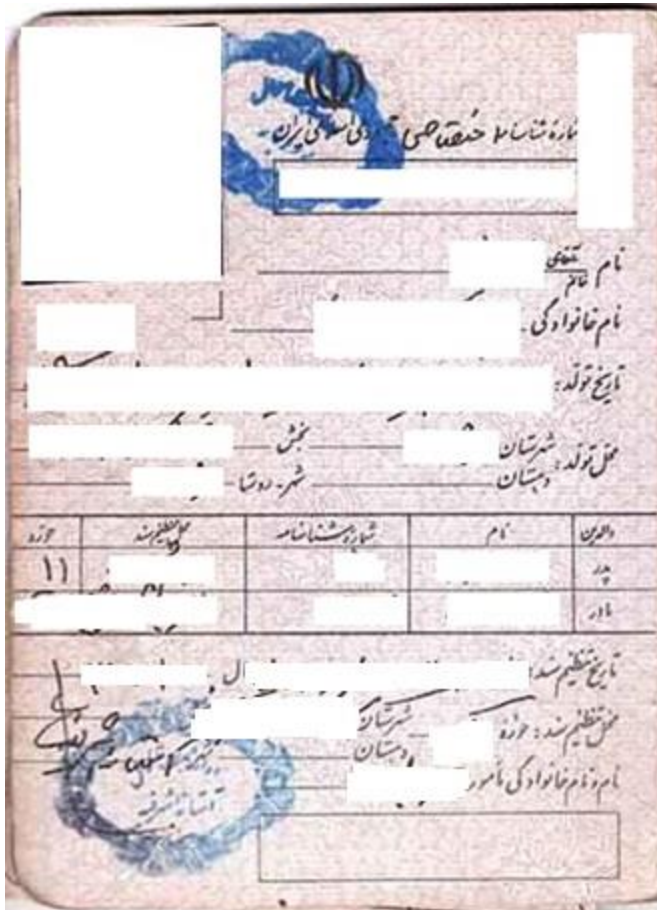 جمهوری اسلامی ایران
نام آقای خانم
نام خانوادگی
تاریخ تولد:
محل تولد: شهرستان بخش
دهستان شهر-روستا
والدین نام شماره شناسنامه محل تنظیم سند حوزه
پدر ۱۱
مادر
تاریخ تنظیم سند:
محل تنظیم سند: حوزه شهرستان
دهستان
نام و نام خانوادگی مأمور
آستانه اشرفیه